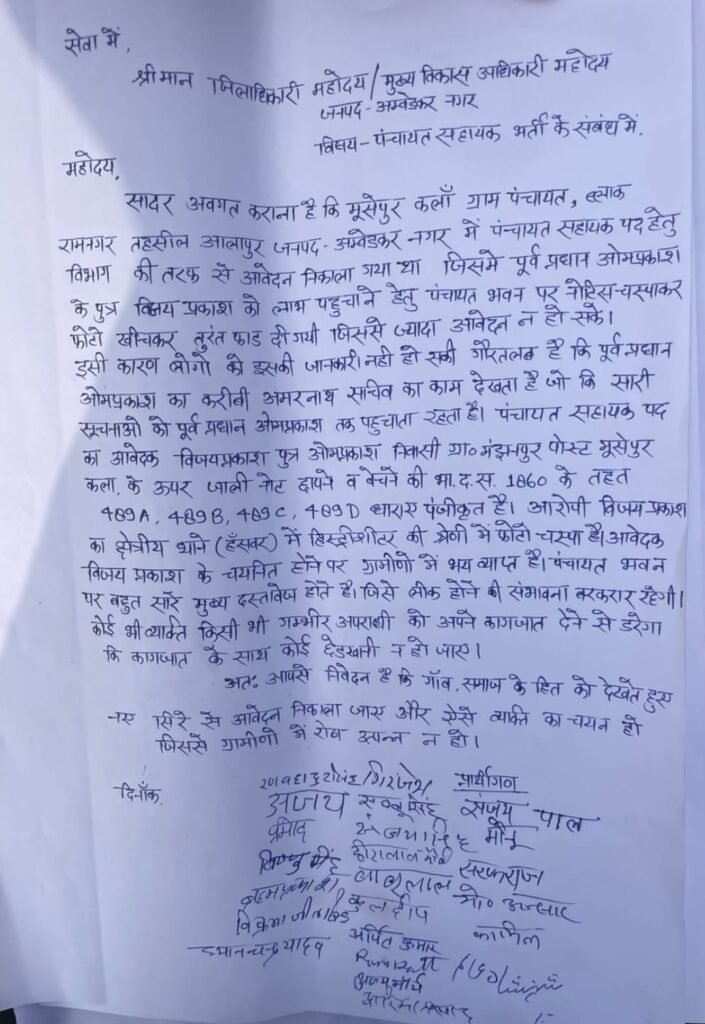 सेवा में,
श्रीमान जिलाधिकारी महोदय/मुख्य विकास अधिकारी महोदय
जनपद-अम्बेडकर नगर
विषय- पंचायत सहायक भर्ती के संबंध में.
महोदय,
सादर अवगत कराना है कि मूसेपुर कलाँ ग्राम पंचायत, ब्लाक
रामनगर तहसील आलापुर जनपद-अम्बेडकर नगर में पंचायत सहायक पद हेतु
विभाग की तरफ से आवेदन निकाला गया था जिसमे पूर्व प्रधान ओमप्रकाश
के पुत्र विजय प्रकाश को लाभ पहुचाने हेतु पंचायत भवन पर नोटिस-चस्पाकर
फोटो खीचकर तुरंत फाड दी गयी जिससे ज्यादा आवेदन न हो सके।
इसी कारण लोगो को इसकी जानकारी नही हो सकी गौरतलब है कि पूर्व प्रधान
ओमप्रकाश का करीबी अमरनाथ सचिव का काम देखता है जो कि सारी
सूचनाओ को पूर्व प्रधान ओमप्रकाश तक पहुचाता रहता है। पंचायत सहायक पद
का आवेदक विजयप्रकाश पुत्र ओमप्रकाश निवासी ग्रा० मंझनपुर पोस्ट मूसेपुर
कला, के ऊपर जाली नोट छापने व बेचने की भा.द.स. 1860 के तहत
489A, 489B, 489C, 489D धाराए पंजीकृत है। आरोपी विजय प्रकाश
का क्षेत्रीय थाने (हँसवर) में हिस्ट्रीशीटर की श्रेणी में फोटो चस्पा है। आवेदक
विजय प्रकाश के चयनित होने पर ग्रामीणो में भय व्याप्त है। पंचायत भवन
पर बहुत सारे मुख्य दस्तावेज होते है। जिसे लीक होने की संभावना बरकरार रहेगी।
कोई भी व्यक्ति किसी भी गम्भीर अपराधी को अपने कागजात देने से डरेगा
कि कागजात के साथ कोई छेडखानी न हो जाए।
अतः आपसे निवेदन है कि गाँव, समाज के हित को देखते हुए
नए सिरे से आवेदन निकाला जाए और ऐसे व्यक्ति का चयन हो
जिससे ग्रामीणो में रोष उत्पन्न न हो।
दिनाँक. प्रार्थीगण
अजय संजय पाल
प्रमोद मोनू
हीरालाल सरफराज
बाबूलाल मो०
कुलदीप कामिल
अर्पित कुमार